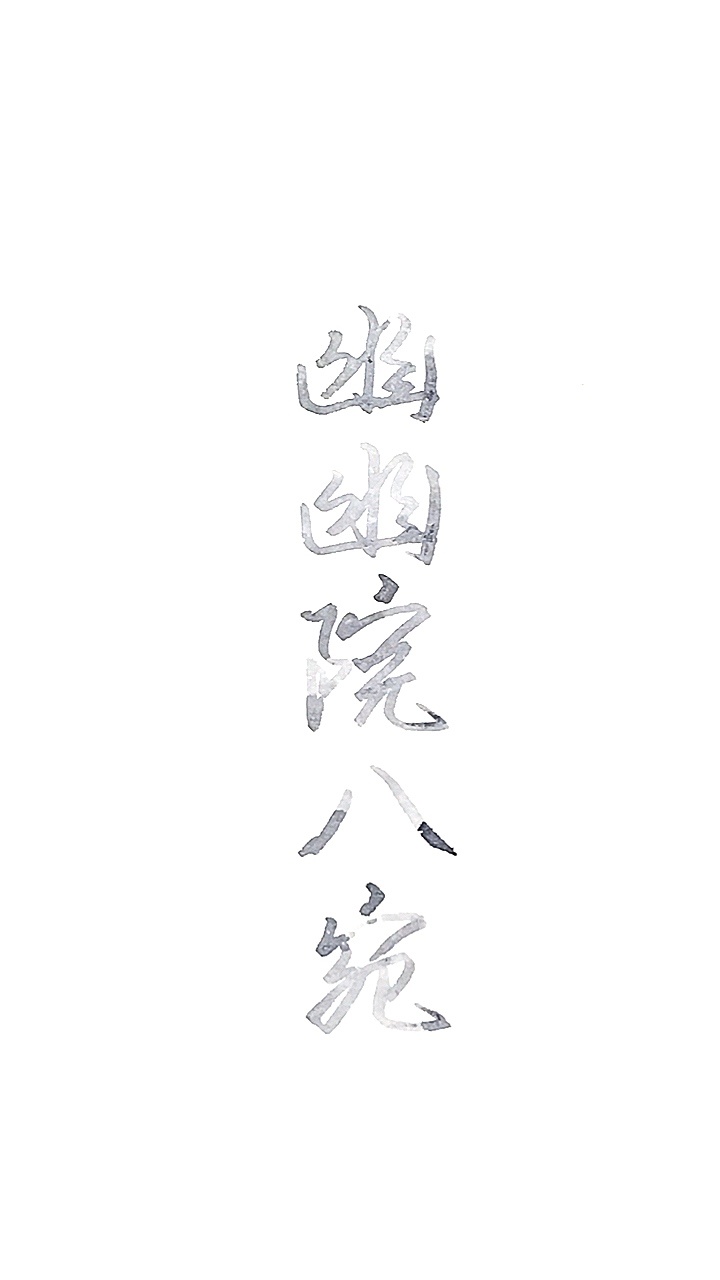 幽幽院八宛